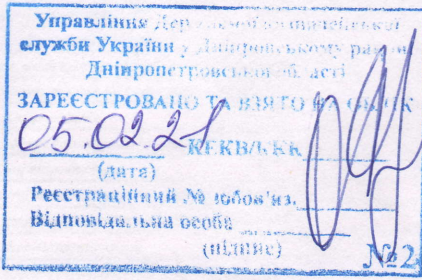 Управління Державної казначейської
служби України у Дніпровському районі
Дніпропетровської області
ЗАРЕЄСТРОВАНО ТА ВЗЯТО НА ОБЛІК
05.02.21 КЕКВ/ККК
(дата)
Реєстраційний № зобов'яз.
Відповідальна особа
(підпис)
№2